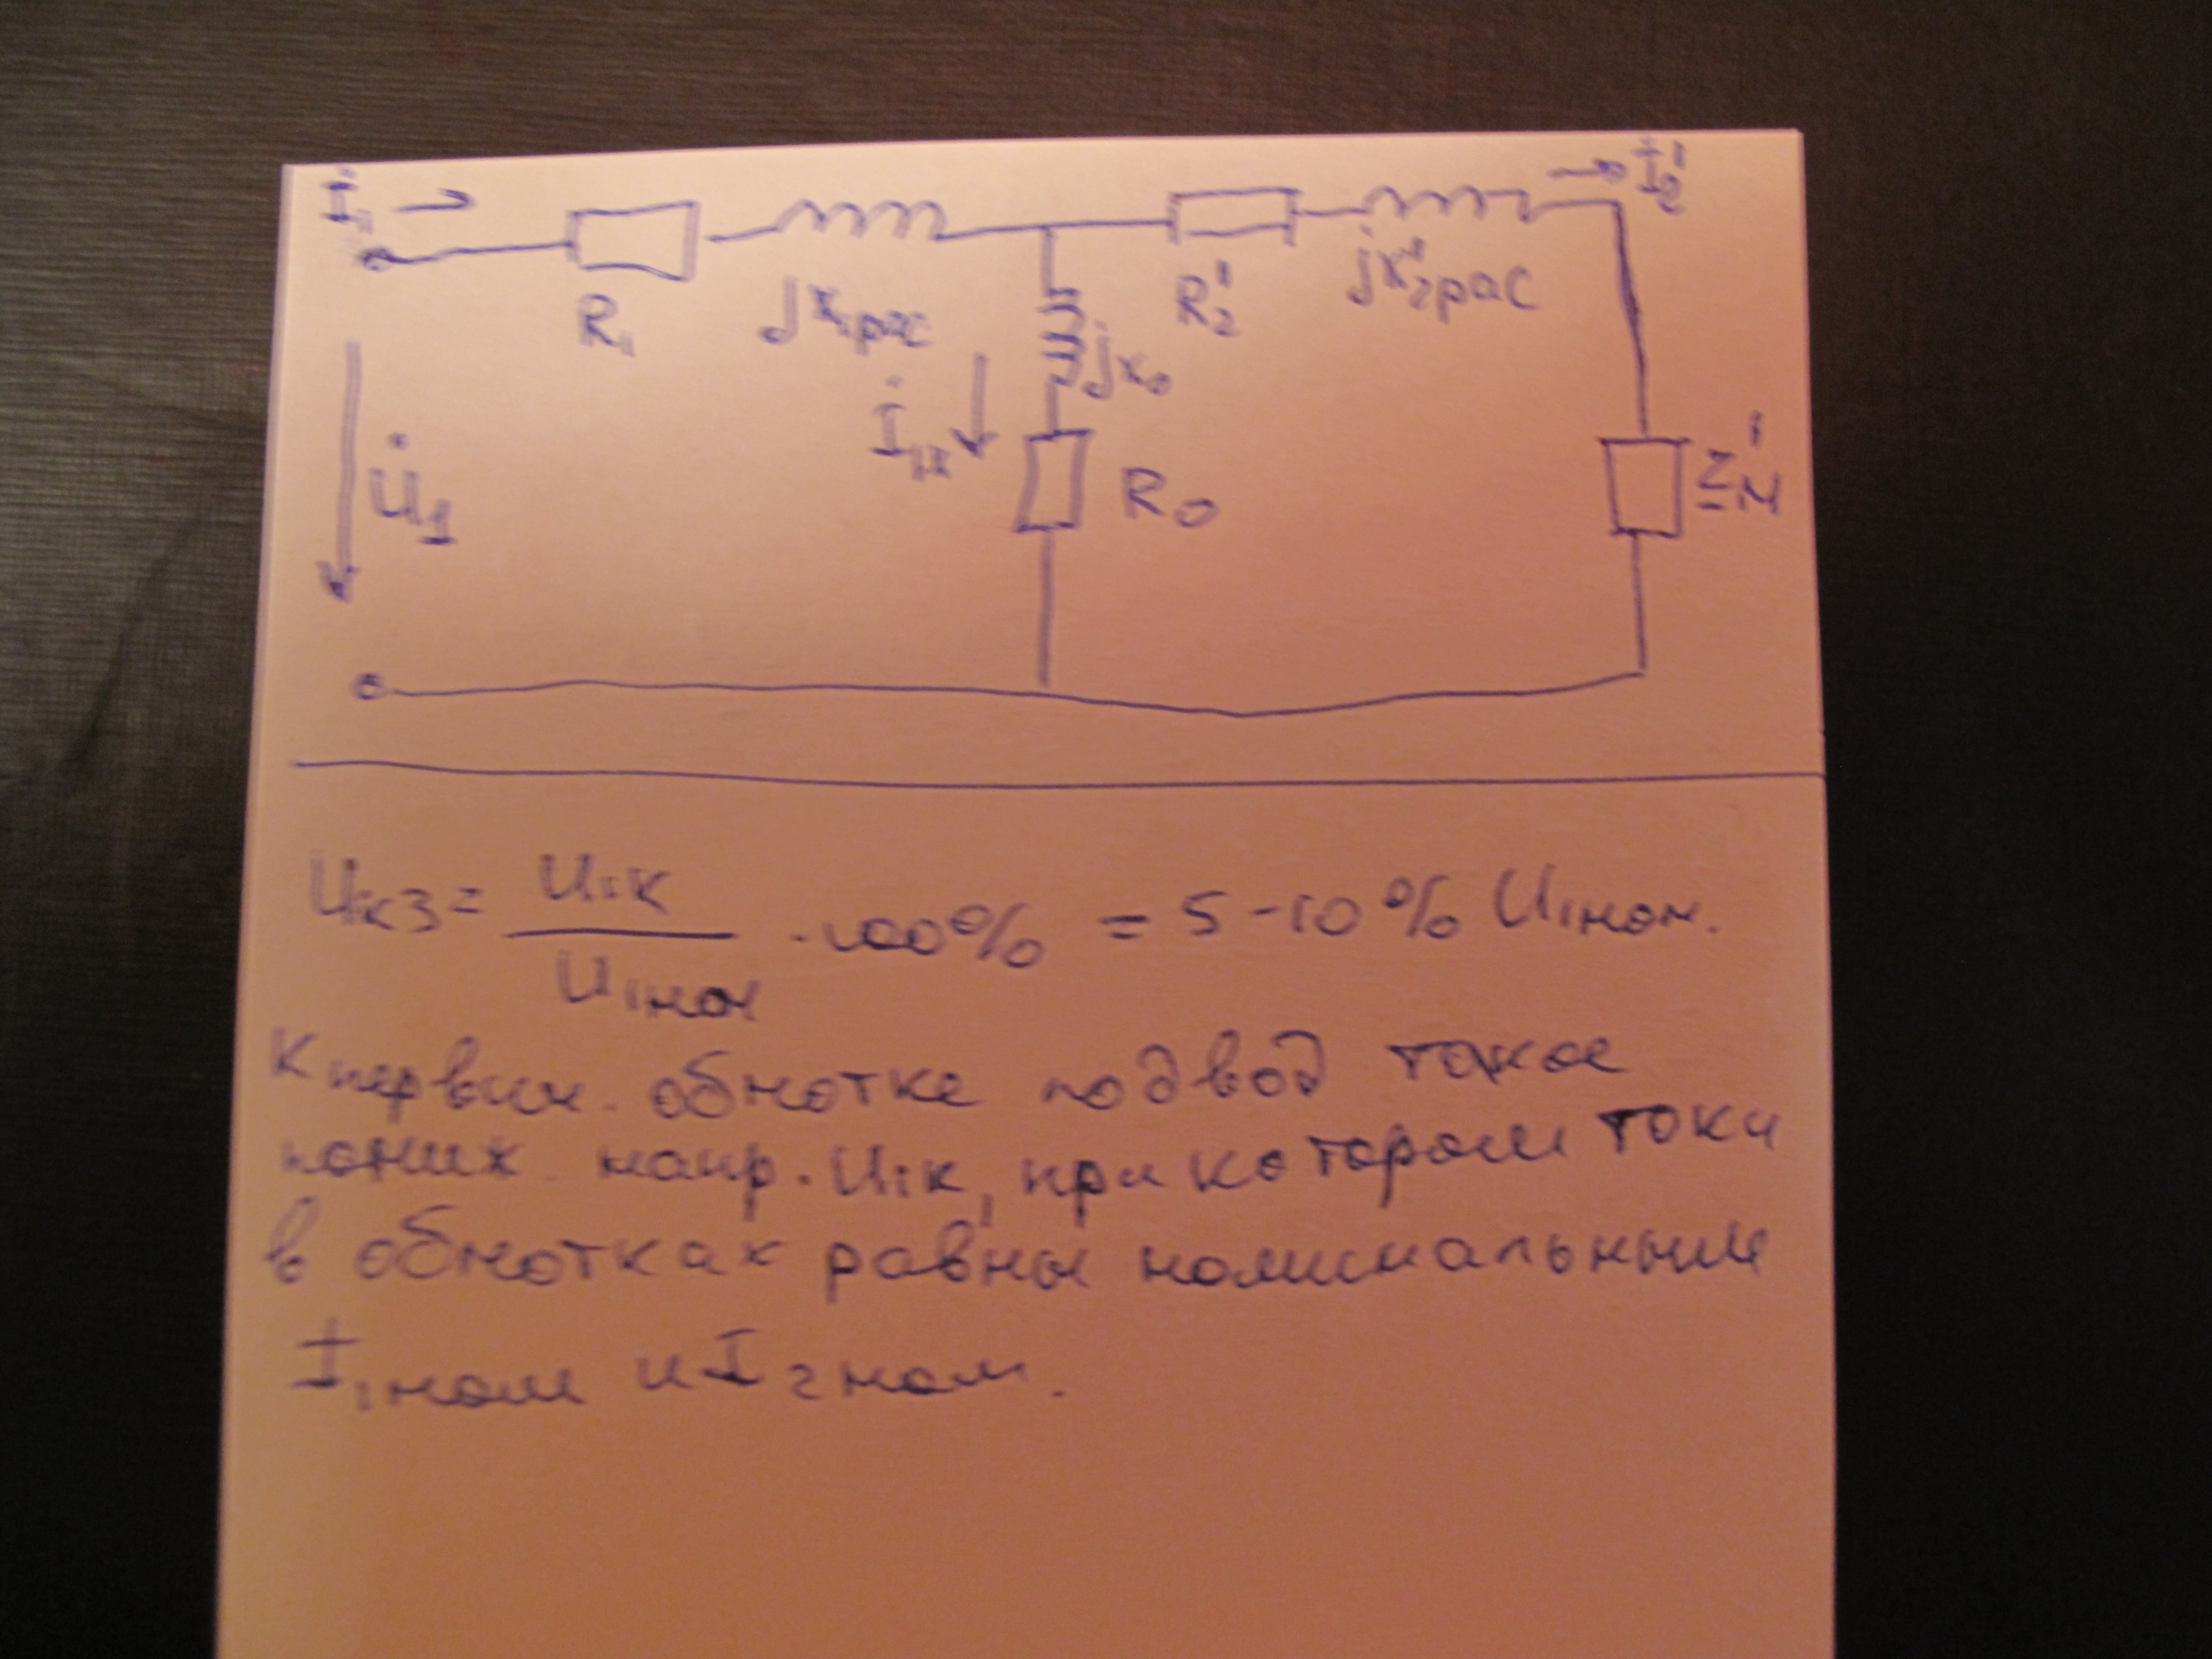 İ₁ → İ₂'
R₁ jx₁рас R₂' jx₂'рас
jx₀
U̇₁ İ₁ₓ R₀ Z'н
U₁кз = U₁к / U₁ном · 100% = 5-10% U₁ном.
К первич. обмотке подвод такое
пониж. напр. U₁к, при котором токи
в обмотках равны номинальным
I₁ном и I₂ном.